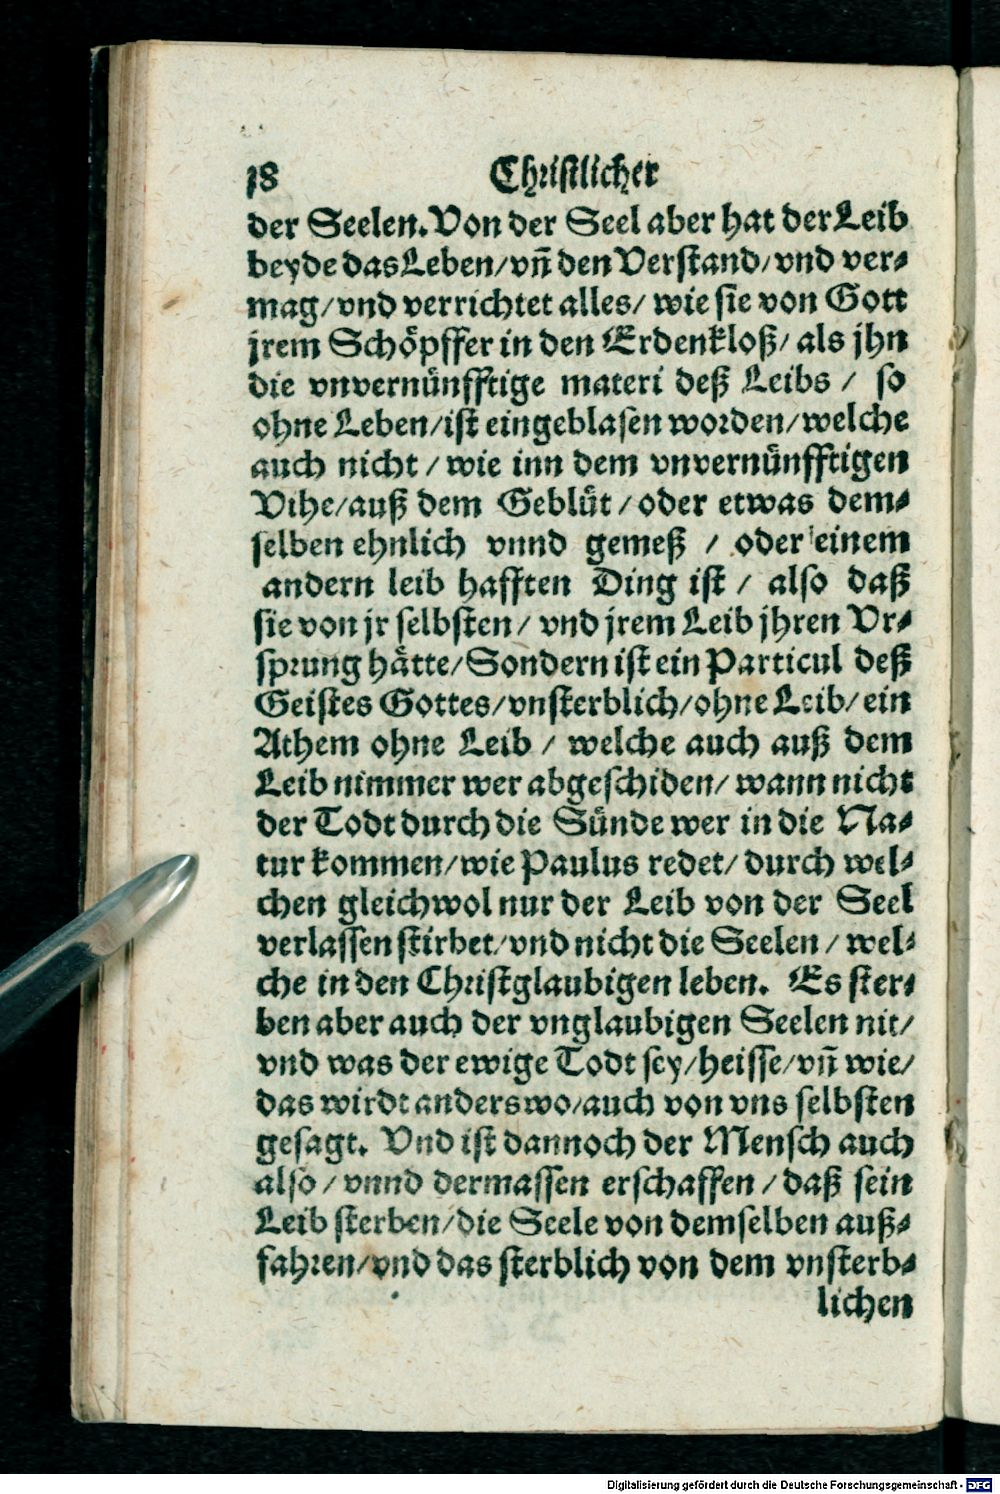 18 Christlicher
der Seelen. Von der Seel aber hat der Leib
beyde das Leben/ vñ den Verstand/ vnd ver-
mag/ vnd verrichtet alles/ wie sie von Gott
jrem Schöpffer in den Erdenkloß/ als jhn
die vnvernünfftige materi deß Leibs / so
ohne Leben/ ist eingeblasen worden/ welche
auch nicht / wie inn dem vnvernünfftigen
Vihe/ auß dem Geblüt / oder etwas dem-
selben ehnlich vnnd gemeß / oder einem
andern leib hafften Ding ist / also daß
sie von jr selbsten / vnd jrem Leib jhren Vr-
sprung hätte/ Sondern ist ein Particul deß
Geistes Gottes/ vnsterblich/ ohne Leib/ ein
Athem ohne Leib / welche auch auß dem
Leib nimmer wer abgeschiden/ wann nicht
der Todt durch die Sünde wer in die Na-
tur kommen/ wie Paulus redet/ durch wel-
chen gleichwol nur der Leib von der Seel
verlassen stirbet/ vnd nicht die Seelen / wel-
che in den Christglaubigen leben. Es ster-
ben aber auch der vnglaubigen Seelen nit/
vnd was der ewige Todt sey/ heisse/ vñ wie/
das wirdt anderswo/ auch von vns selbsten
gesagt. Vnd ist dannoch der Mensch auch
also / vnnd dermassen erschaffen / daß sein
Leib sterben/ die Seele von demselben auß-
fahren/ vnd das sterblich von dem vnsterb-
lichen
Digitalisierung gefördert durch die Deutsche Forschungsgemeinschaft - DFG